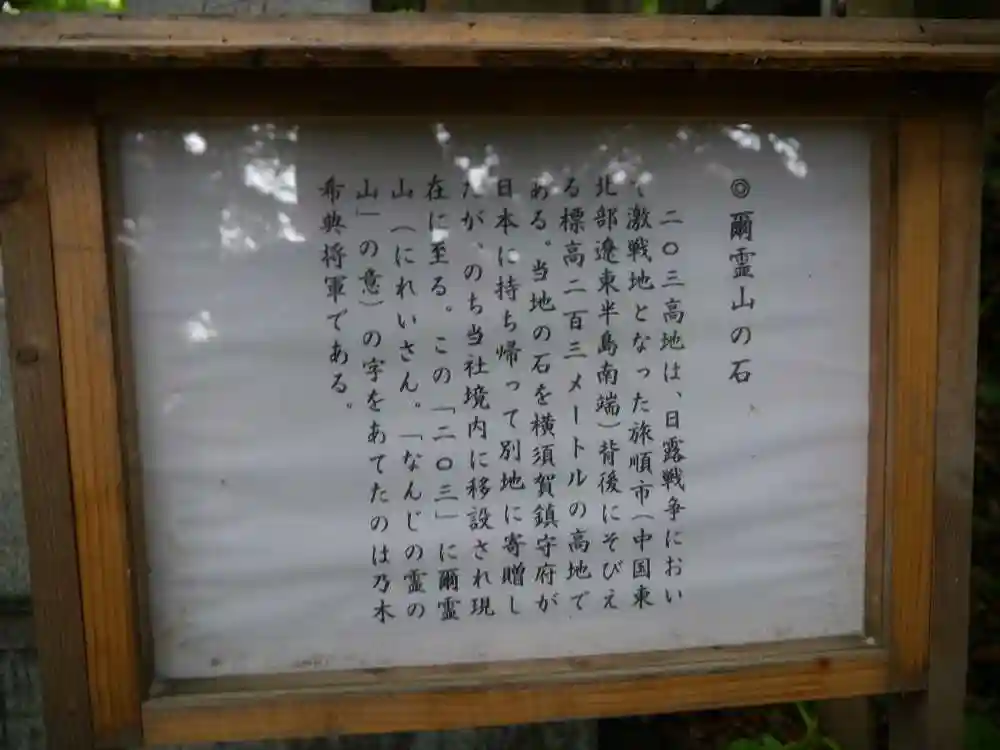 ◎爾霊山の石
二〇三高地は、日露戦争におい
て激戦地となった旅順市(中国東
北部遼東半島南端)背後にそびえ
る標高二百三メートルの高地で
ある。当地の石を横須賀鎮守府が
日本に持ち帰って別地に寄贈し
たが、のち当社境内に移設され現
在に至る。この「二〇三」に爾霊
山(にれいさん。「なんじの霊の
山」の意)の字をあてたのは乃木
希典将軍である。